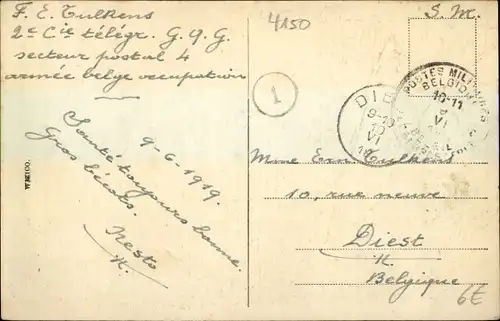 F. E. Tulkens
2e Cie télégr. G. Q. G.
secteur postal 4
armée belge occupation
9-6-1919.
Santé toujours bonne.
Gros bécots.
Nesto
4150
1
S. M.
POSTES MILITAIRES
BELGIQUE
10-11
VI
DIE
9-10
10
VI
Mme Ern. Tulkens
10, rue neuve
Diest
Belgique
6€